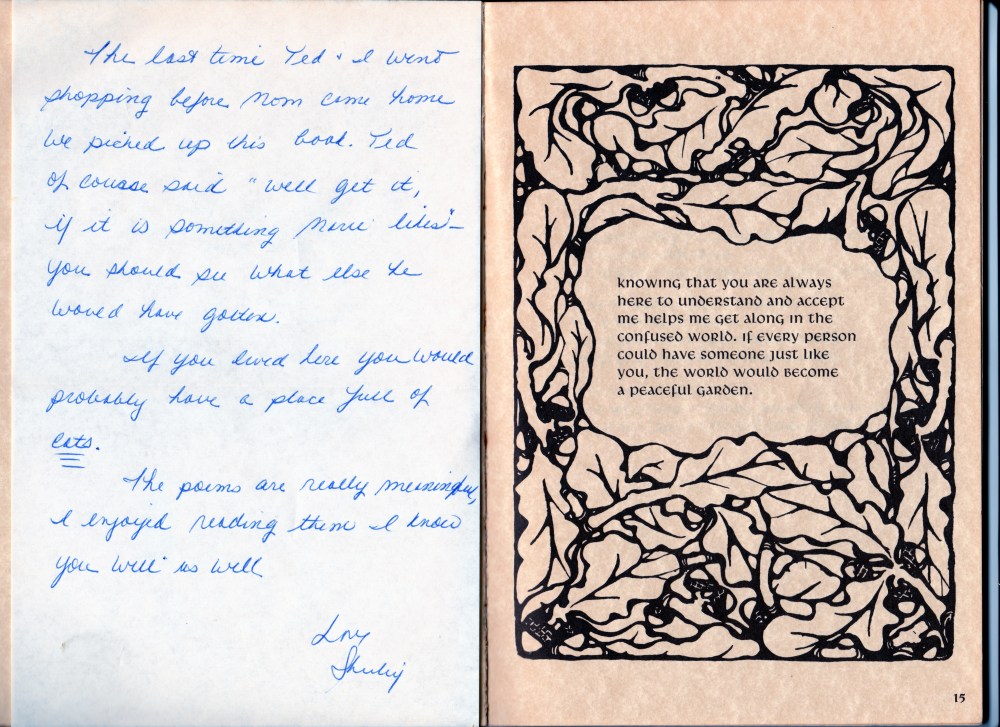 The last time Ted & I went
shopping before Mom came home
we picked up this book. Ted
of course said "well get it,
if it is something Marie likes" –
you should see what else he
would have gotten.
If you lived here you would
probably have a place full of
cats.
The poems are really meaningful,
I enjoyed reading them I know
you will as well
Love
Shirley
knowing that you are always
here to understand and accept
me helps me get along in the
confused world. if every person
could have someone just like
you, the world would become
a peaceful garden.
15